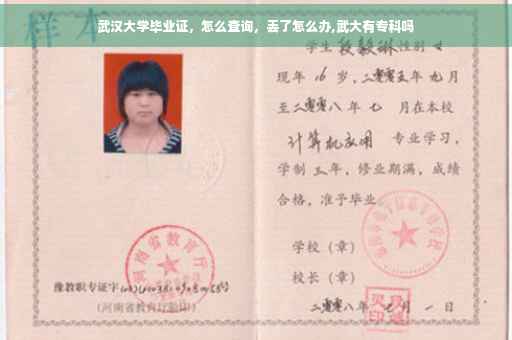 武汉大学毕业证，怎么查询，丢了怎么办,武大有专科吗
样本
学生 段毅琳 性别 女
现年 16 岁，二零零五年 九月
至二零零八年 七 月在本校
计算机应用 专业学习，
学制 三 年，修业期满，成绩
合格，准予毕业
学校（章）
校长（章）
河南省教育厅
豫教职专证字
(河南省教育厅验印)
二零零八年 月 一 日